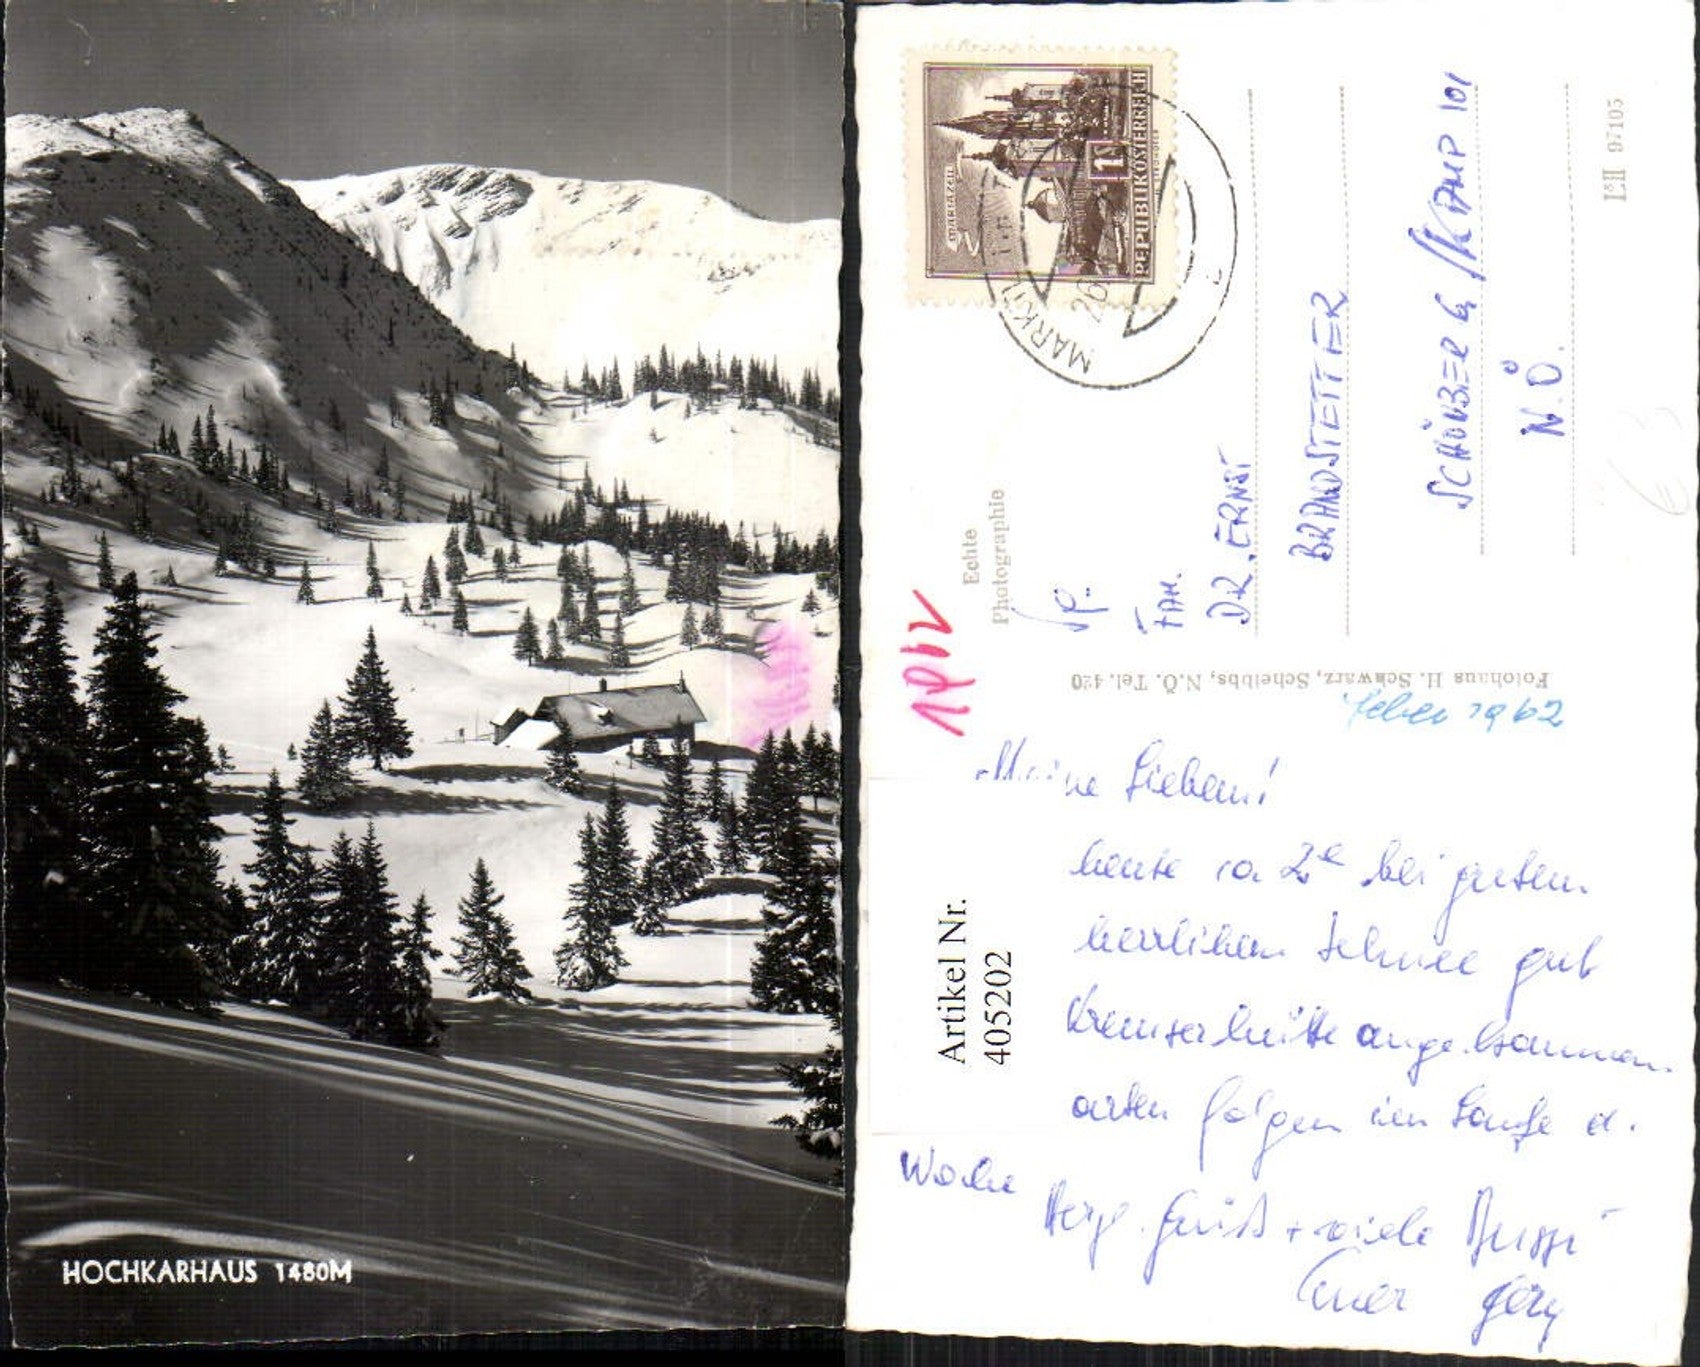 HOCHKARHAUS 1480M
MARIAZELL
1
REPUBLIK ÖSTERREICH
MARKT
26
L&H 97105
Echte
Photographie
Fotohaus H. Schwarz, Scheibbs, N.Ö. Tel. 420
FAM.
DR. ERNST
BRANDSTETTER
SCHÖNBERG/KAMP 101
N.Ö.
1962
Artikel Nr.
405202
Meine Lieben!
heute ca 2 bei gutem
herrlichem Schnee gut
Kremserhütte angekommen
Karten folgen im Laufe d.
Woche
Herzl. Grüße + viele Bussi
Euer